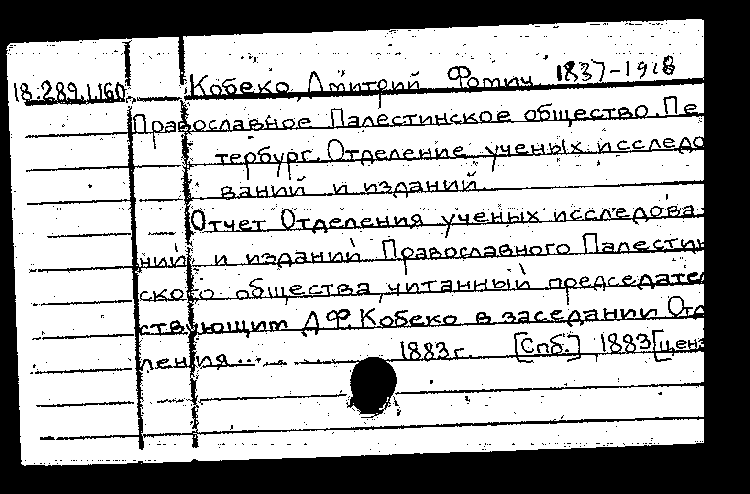 18.289.1.160 Кобеко, Дмитрий Фомич 1837-1918
Православное Палестинское общество. Пе
тербург. Отделение ученых исследо
ваний и изданий.
Отчет Отделения ученых исследова-
ний и изданий Православного Палестин
ского общества, читанный председатель
ствующим Д.Ф. Кобеко в заседании Отд
ления... ... 1883 г. [Спб.], 1883 [ценз